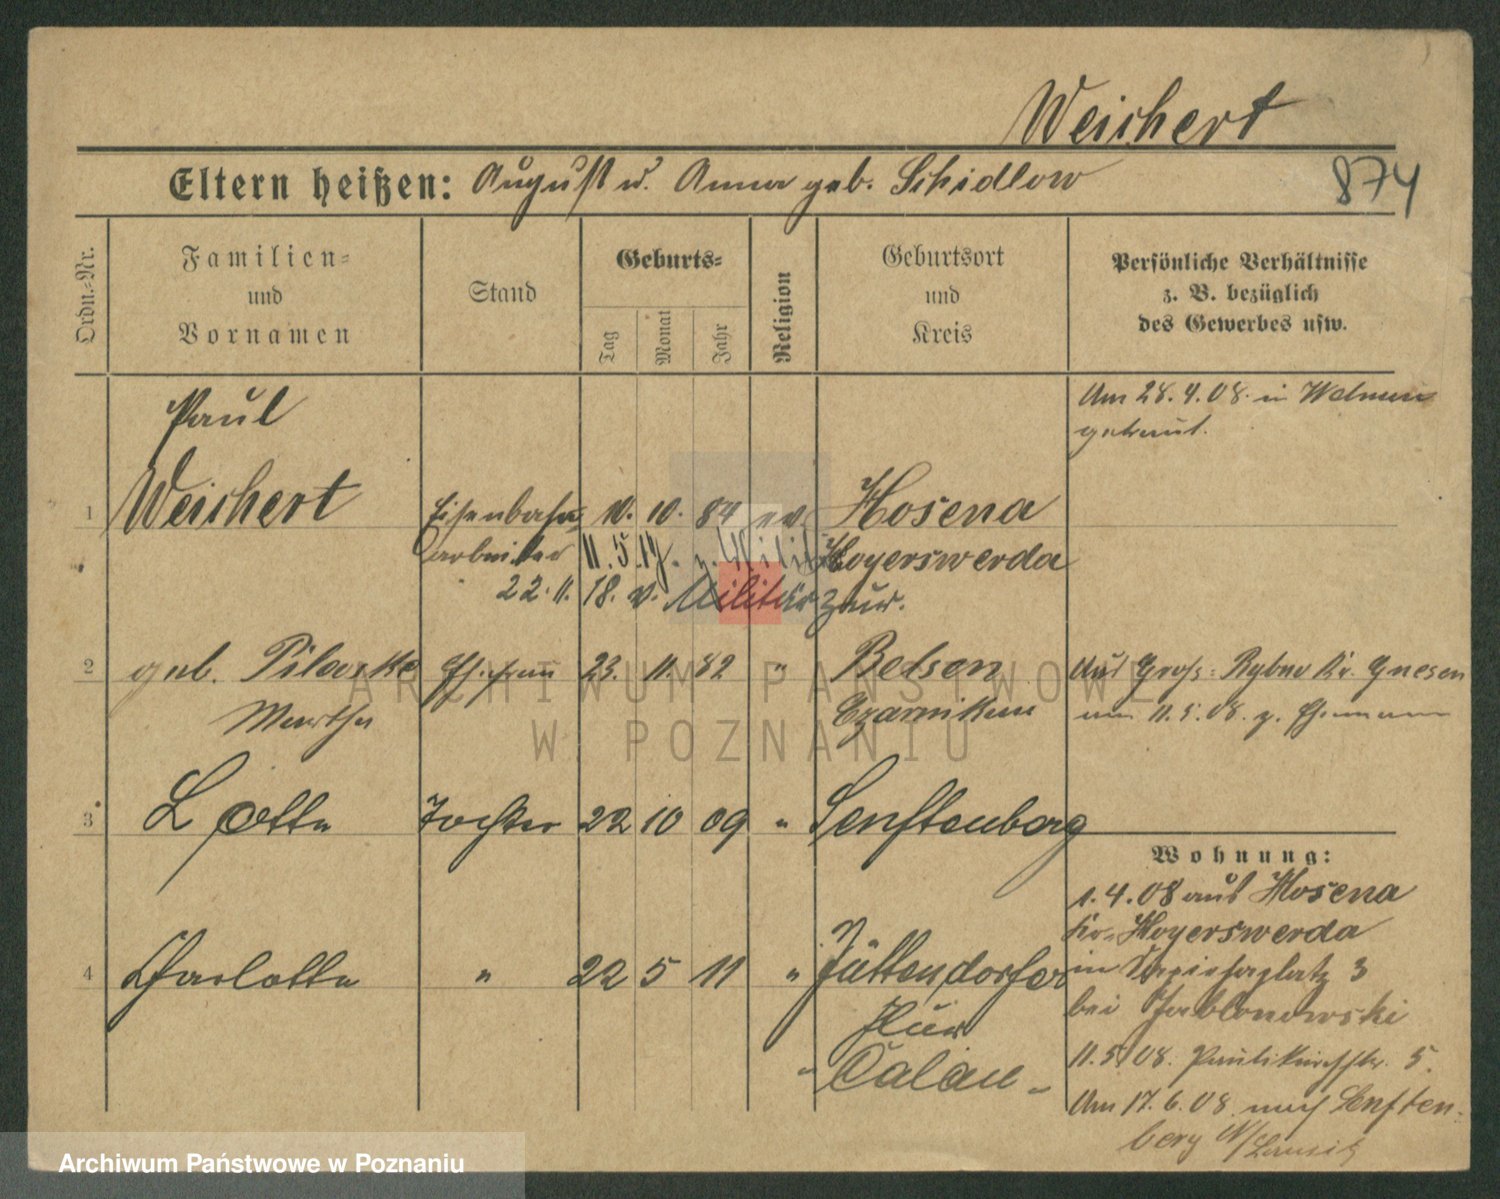 Weichert
Eltern heißen: August u. Anna geb. Schidlow
874
Ordn.-Nr.
Familien-
und
Vornamen
Stand
Geburts-
Tag
Monat
Jahr
Religion
Geburtsort
und
Kreis
Persönliche Verhältnisse
z. B. bezüglich
des Gewerbes usw.
Paul
Am 28.4.08. in
getraut.
1 Weichert Eisenbahn 10. 10. 84 ev. Hosena
arbeiter 11.5.17. z. Milit. Hoyerswerda
22.11.18. v. Militär zur.
2 geb. Pilarske Ehefrau 23. 11. 82 " Belsen Aus Groß-Rybno Kr. Gnesen
Martha Czarnikau am 11.5.08. z. Ehemann
3 Lotte Tochter 22 10 09 " Senftenberg
Wohnung:
1.4.08 aus Hosena
Kr. Hoyerswerda
4 Charlotte " 22 5 11 " Jüttendorfer in 3
Flur bei Jablonowski
" Calau - 11.5.08. Paulikirchstr. 5.
Am 17.6.08 nach Senften-
berg N/Lausitz
ARCHIWUM PAŃSTWOWE
W POZNANIU
Archiwum Państwowe w Poznaniu